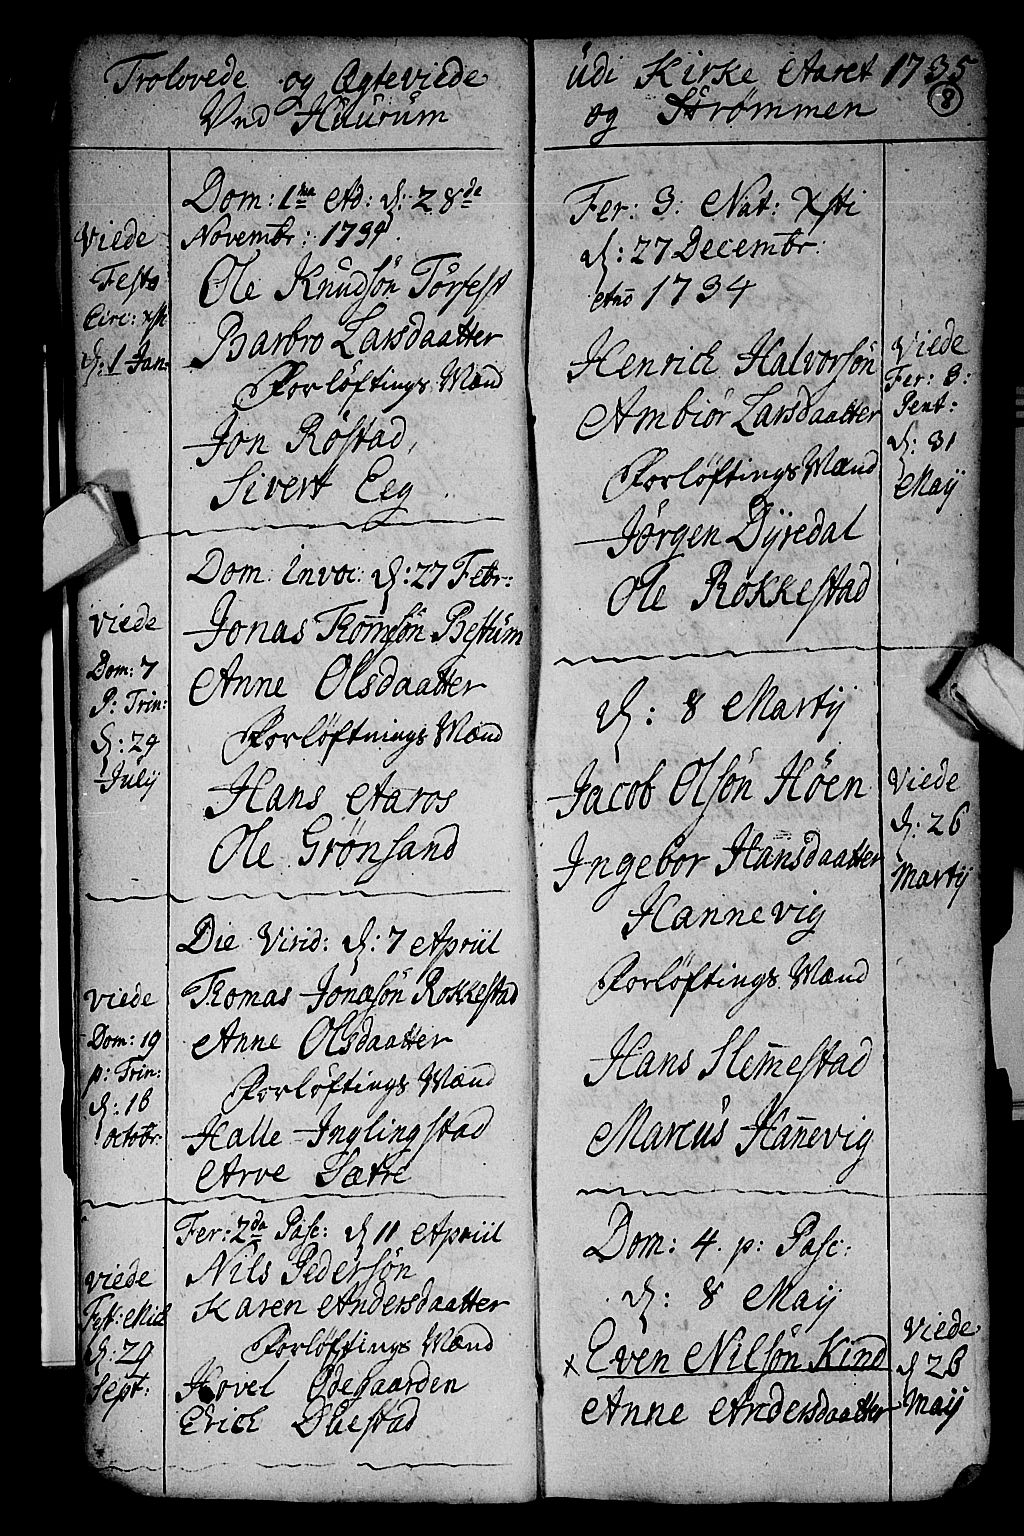 Trolovede og Ægteviede
Ved Huurum
Dom: 1ma Ad: d: 28de
Novembr: 1734.
Viede
Festo
Circ: Xsti
d: 1 Jan:
Ole Knudsøn Tørfest
Barbro Larsdaatter
Forløftings Mænd
Jon Røstad,
Sivert Eeg
Dom: Invoc: d: 27 Febr:
Viede
Dom: 7
P: Trin:
d: 29
July
Jonas Tromsøn Bestum
Anne Olsdaatter
Forløftnings Mænd
Hans Aaros
Ole Grønsand
Die Virid: d: 7 Apriil
Viede
Dom: 19
p: Trin:
d: 16
octobr
Tromas Jonasøn Rokkestad
Anne Olsdaatter
Forløftings Mænd
Halle Inglingstad
Arve Sætre
Fer: 2da Pasc: d 11 Apriil
Viede
Fest: Mich
d: 29
Sept:
Nils Pedersøn
Karen Andersdaatter
Forløftings Mænd
Hovel Ødegaarden
Erich Duestad
udi Kirke Aaret 1735
8
og Strømmen
Fer: 3: Nat: Xsti
d: 27 Decembr:
Año 1734
Henrich Halvorsøn
Ambiør Larsdaatter
Forløftings Mænd
Jørgen Dyredal
Ole Rokkestad
Viede
Fer: 3:
Pent:
d: 31
Maij
d: 8 Martij
Jacob Olsøn Høen
Ingebor Hansdaatter
Hannevig
Forløftings Mænd
Hans Slem̄estad
Marcus Han̄evig
Viede
d: 26
Martij
Dom: 4. p: Pasc:
d: 8 Maij
x Even Nilsøn Kind
Anne Andersdaatter
Viede
d 28
Maij